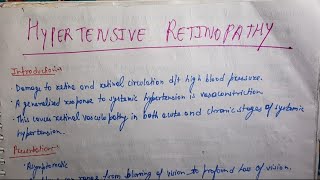 HYPERTENSIVE RETINOPATHY
Introduction:
Damage to retina and retinal circulation d/t high blood pressure.
• A generalized response to systemic hypertension is vasoconstriction
• This cover retinal vasculopathy in both acute and chronic stages of systemic
hypertension.
Presentation:
• Asymptomatic
from blurring of vision to profound loss of vision.